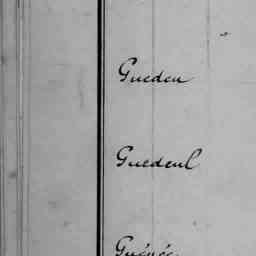 Guedeu
Guedeul
Guénéc